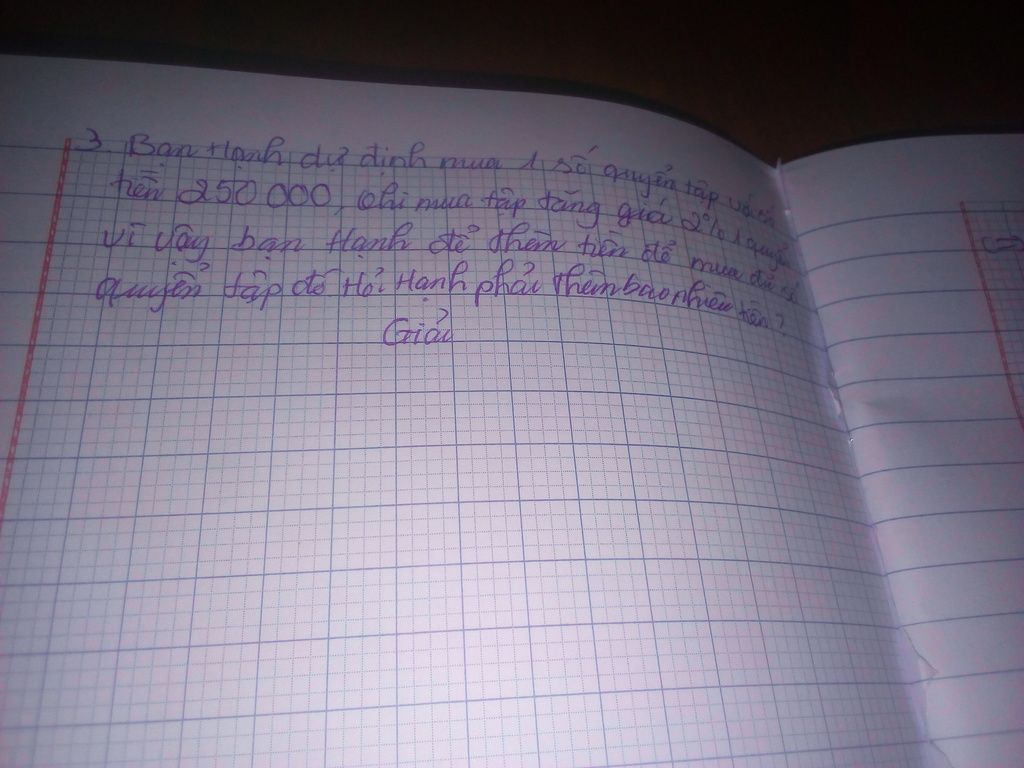 3 Bạn Hạnh dự định mua 1 số quyển tập với số
tiền 250 000, khi mua tập tăng giá 2% 1 quyển
vì vậy bạn Hạnh để thêm tiền để mua đủ số
quyển tập đó Hỏi Hạnh phải thêm bao nhiêu tiền?
Giải